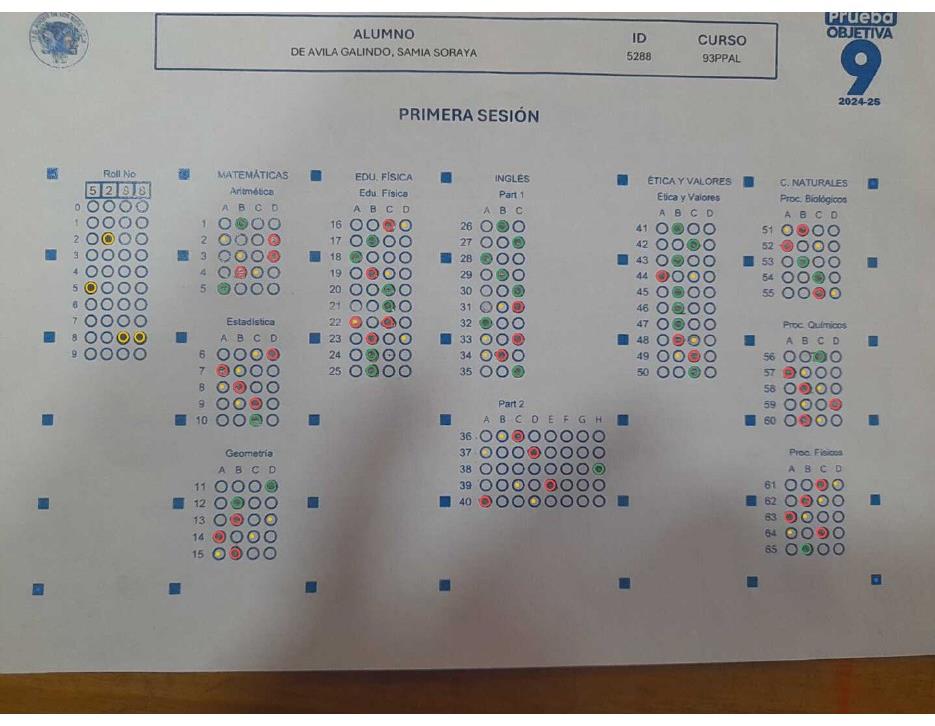 Prueba
OBJETIVA
9
2024-25
ALUMNO ID CURSO
DE AVILA GALINDO, SAMIA SORAYA 5288 93PPAL
PRIMERA SESIÓN
Roll No
5 2 8 8
0
1
2
3
4
5
6
7
8
9
MATEMÁTICAS
Aritmética
A B C D
1
2
3
4
5
Estadística
A B C D
6
7
8
9
10
Geometría
A B C D
11
12
13
14
15
EDU. FÍSICA
Edu. Física
A B C D
16
17
18
19
20
21
22
23
24
25
INGLÉS
Part 1
A B C
26
27
28
29
30
31
32
33
34
35
Part 2
A B C D E F G H
36
37
38
39
40
ÉTICA Y VALORES
Ética y Valores
A B C D
41
42
43
44
45
46
47
48
49
50
C. NATURALES
Proc. Biológicos
A B C D
51
52
53
54
55
Proc. Químicos
A B C D
56
57
58
59
60
Proc. Físicos
A B C D
61
62
63
64
65